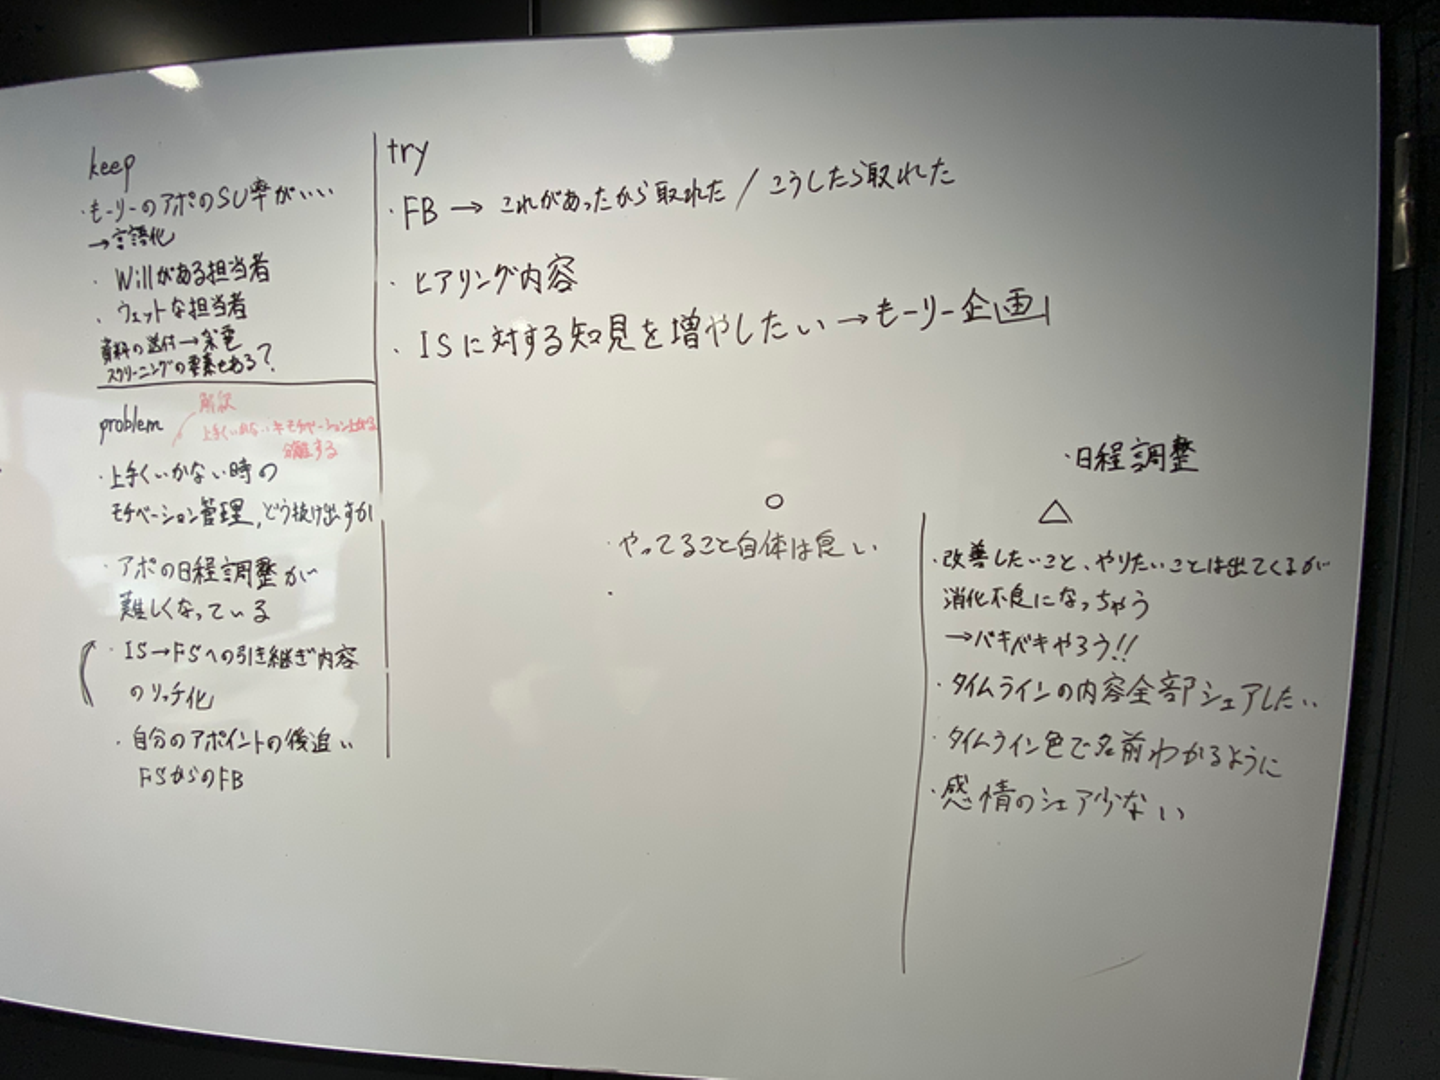 keep
・もーリーのアポのSU率がいい
→言語化
・Willがある担当者
・ウェットな担当者
資料の送付→架電
スクリーニングの要素もある?
problem
解決
上手くいかない
分離する
・上手くいかない時の
モチベーション管理,どう抜け出すか
・アポの日程調整が
難しくなっている
・IS→FSへの引き継ぎ内容
のリッチ化
・自分のアポイントの後追い
FSからのFB
try
・FB→これがあったから取れた/こうしたら取れた
・ヒアリング内容
・ISに対する知見を増やしたい→もーリー企画
・日程調整
○
・やってること自体は良い
・
△
・改善したいこと、やりたいことは出てくるが
消化不良になっちゃう
→バキバキやろう!!
・タイムラインの内容全部シェアしたい
・タイムライン色で名前わかるように
・感情のシェア少ない